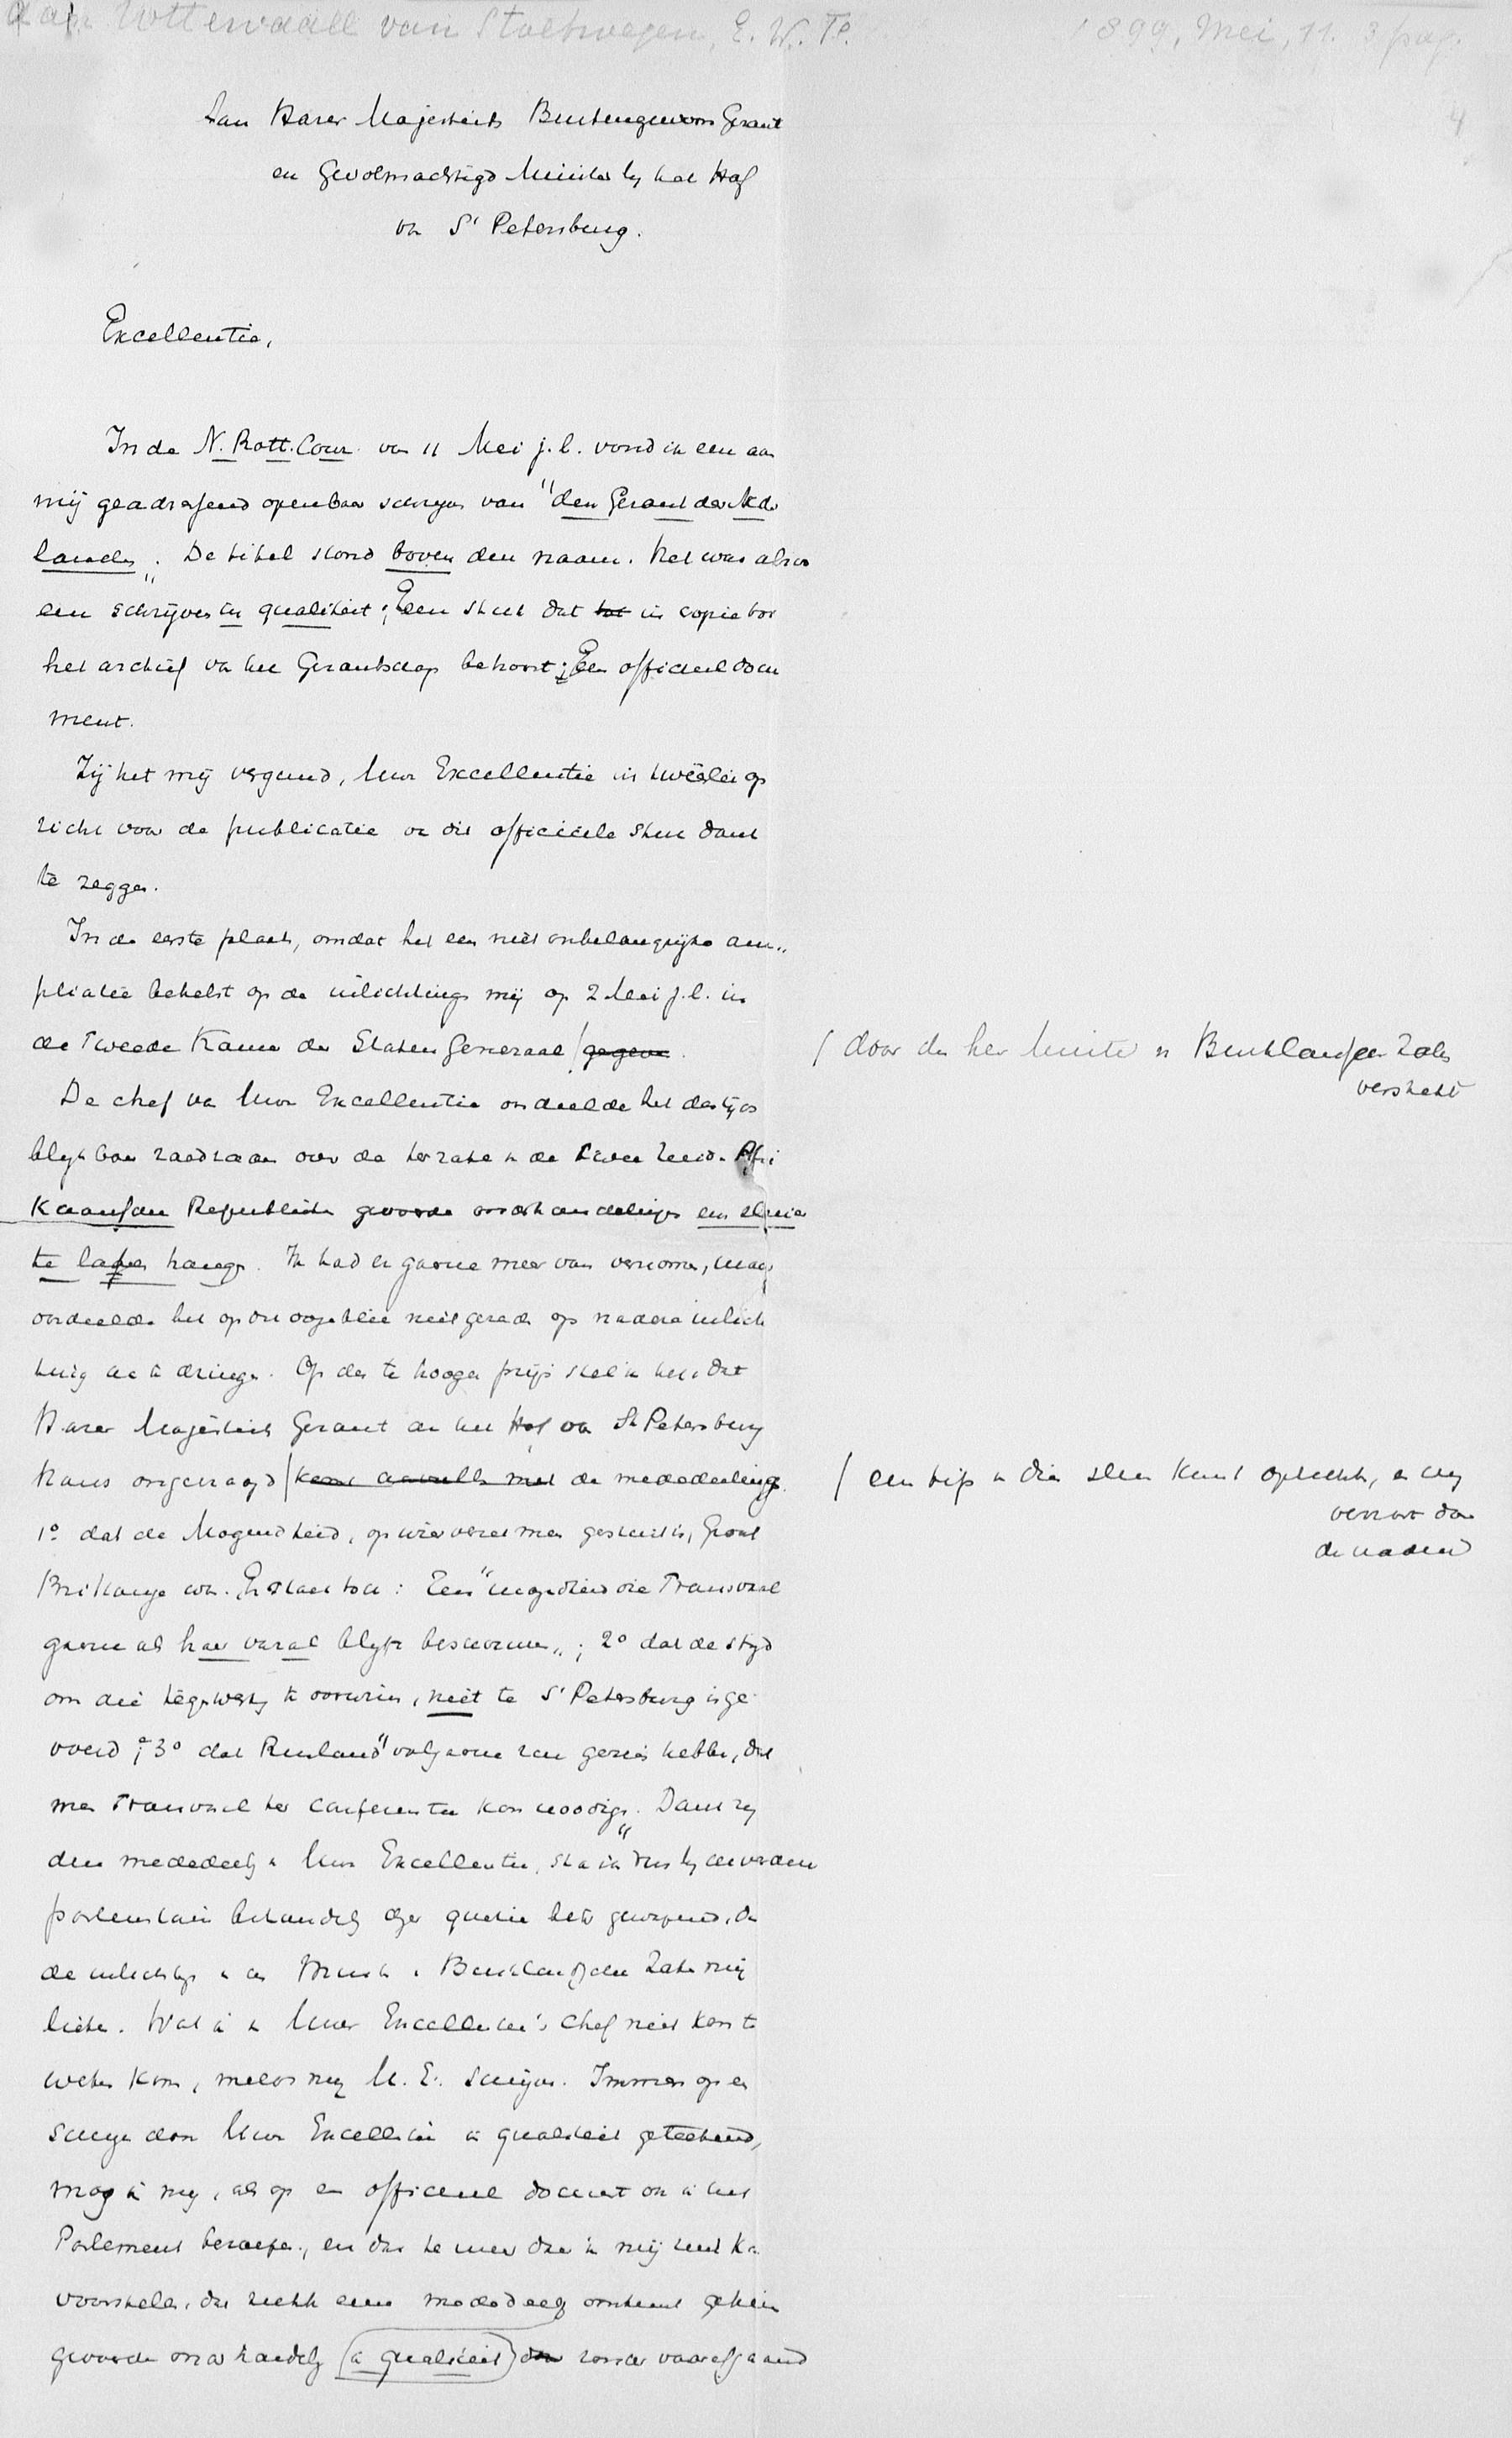 aan Uttewaall van Stoetwegen, E. W. Th. 1899, Mei, 11. 3 pag.
4
Aan Harer Majesteits Buitengewoon Gezant
en Gevolmachtigd Minister bij het Hof
van St Petersburg.
Excellentie,
In de N. Rott. Cour. van 11 Mei j.l. vond ik een aan
mij geadresseerd openbaar schrijven van "den Gezant der Neder
landen". De titel stond boven den naam. Het was alzoo
een schrijven in qualiteit; Een stuk dat tot in copie tot
het archief van het Gezantschap behoort; Een officieel docu
ment.
Zij het mij vergund, Uwer Excellentie in tweeërlei op
zicht voor de publicatie van dit officieele stuk dank
te zeggen.
In de eerste plaats, omdat het een niet onbelangrijke am„
pliatie behelst op de inlichtingen mij op 2 Mei j.l. in
de Tweede Kamer der Staten Generaal / gegeven.
/ door den heer Minister van Buitenlandsche Zaken
verstrekt
De chef van Uwe Excellentie oordeelde het destijds
blijkbaar raadzaam over de ter zake van de Zuid-Afri
kaansche Republiek gevoerde onderhandelingen een sluier
te laten hangen. Ik had er gaarne meer van vernomen, maar
oordeelde het op dit oogenblik niet geraden op nadere inlich
ting aan te dringen. Op des te hooger prijs stel ik het, dat
Harer Majesteits Gezant aan het Hof van St Petersburg
thans ongevraagd / komt aanvullen met de mededeelingen.
/ een tip van dien sluier komt oplichten, en mij
verrast door
de nadere
1o dat de Mogendheid, op wier verzet men gestuit is, Groot
Brittanje was. Er staat toch: Een "mogendheid die Transvaal
gaarne als haar vazal blijft beschouwen"; 2o dat de strijd
om die tegenwerking te overwinnen, niet te St Petersburg is ge
voerd; 3o dat Rusland "volgaarne zou gezien hebben, dat
men Transvaal ter conferentie kon noodigen". Dank zij
deze mededeeling van Uwe Excellentie, sta ik dus bij de verdere
parlementaire behandeling dezer quaestie beter gewapend, dan
de inlichting van den Minister van Buitenlandsche Zaken mij
lieten. Wat ik van Uwer Excellentie's chef niet kon te
weten komen, meldt mij U. E. schrijven. Immers op een
schrijven door Uwe Excellentie in qualiteit geteekend,
mag ik mij, als op een officieel document ook in het
Parlement beroepen, en dit te meer daar ik mij niet kan
voorstellen, dat zulk eene mededeeling omtrent geheim
gevoerde onderhandeling (in qualiteit) door zonder voorafgaand